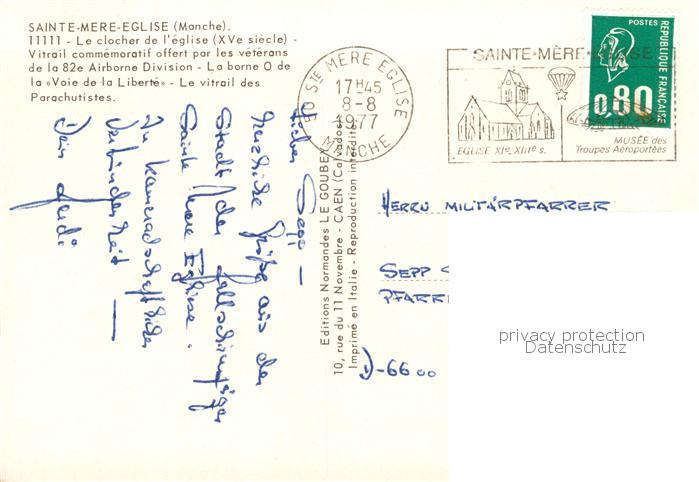 SAINTE-MERE-EGLISE (Manche).
11111 - Le clocher de l'église (XVe siècle) -
Vitrail commémoratif offert par les vétérans
de la 82e Airborne Division - La borne O de
la «Voie de la Liberté» - Le vitrail des
Parachutistes.
50 STE MERE EGLISE
17H45
8-8
1977
MANCHE
SAINTE-MÈRE-EGLISE
EGLISE XIe, XIIIe s.
MUSÉE des
Troupes Aéroportées
POSTES
REPUBLIQUE FRANÇAISE
0,80
Lieber Sepp -
herzliche Grüße aus der
Stadt der Fallschirmjäger
Sainte Mere Eglise.
In kameradschaftlicher
Verbundenheit
Dein
Editions Normandes LE GOUBEY
10, rue du 11 Novembre - CAEN (Calvados)
Imprimé en Italie - Reproduction interdite
HERRN MILITÄRPFARRER
SEPP
PFARR
D-6600
privacy protection
Datenschutz